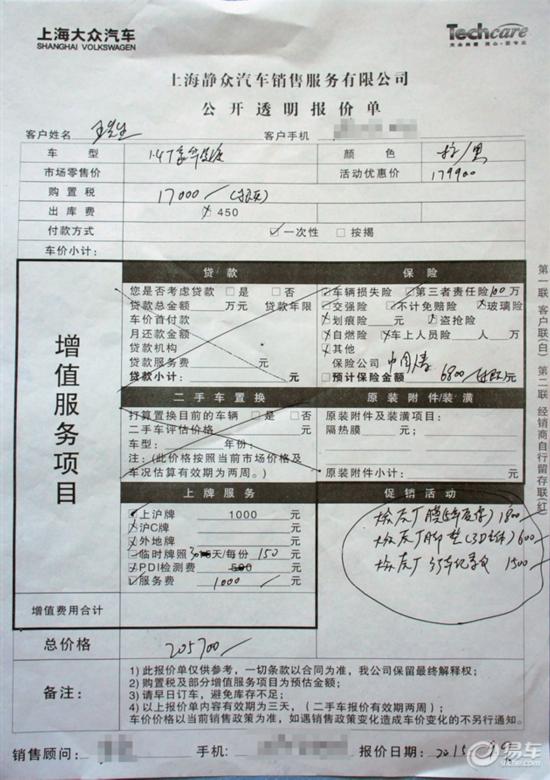 上海大众汽车
SHANGHAI VOLKSWAGEN
Techcare
上海静众汽车销售服务有限公司
公开透明报价单
客户姓名 客户手机
车型 1.4T豪华 颜色 /黑
市场零售价 活动优惠价 179900
购置税 17000/
出库费 ¥450
付款方式 ☑一次性 □按揭
车价小计:
增值服务项目
贷款 保险
您是否考虑贷款 □是 □否
贷款总金额 万元 贷款年限
车价首付款 元
月还款金额 元
贷款机构
贷款服务费 元
贷款小计: 元
车辆损失险 第三者责任险100万
交强险 不计免赔险 玻璃险
划痕险 元 盗抢险
自燃险 车上人员险 人 万
其他
保险公司
□预计保险金额 6800/ 元
二手车置换 原装附件/装潢
打算置换目前的车辆 □是 □否
二手车评估价格 元
车型: 年份:
注:(此价格按照当前市场价格及
车况估算有效期为两周。)
原装附件及装潢项目:
隔热膜 元:
原装附件小计: 元
上牌服务 促销活动
上沪牌 1000 元
沪C牌 元
外地牌 元
临时牌照 天/每份 150 元
PDI检测费 500 元
服务费 1000/ 元
1800/
600/
1500/
增值费用合计
总价格 205700/
备注:
1)此报价单仅供参考,一切条款以合同为准,我公司保留最终解释权;
2)购置税及部分增值服务项目为预估金额;
3)请早日订车,避免库存不足;
4)以上报价单内容有效期为三天,(二手车报价有效期两周);
车价价格以当前销售政策为准,如遇销售政策变化造成车价变化的不另行通知。
第一联 客户联(白) 第二联 经销商自行留存联(红)
销售顾问: 手机: 报价日期: 2015.
易车